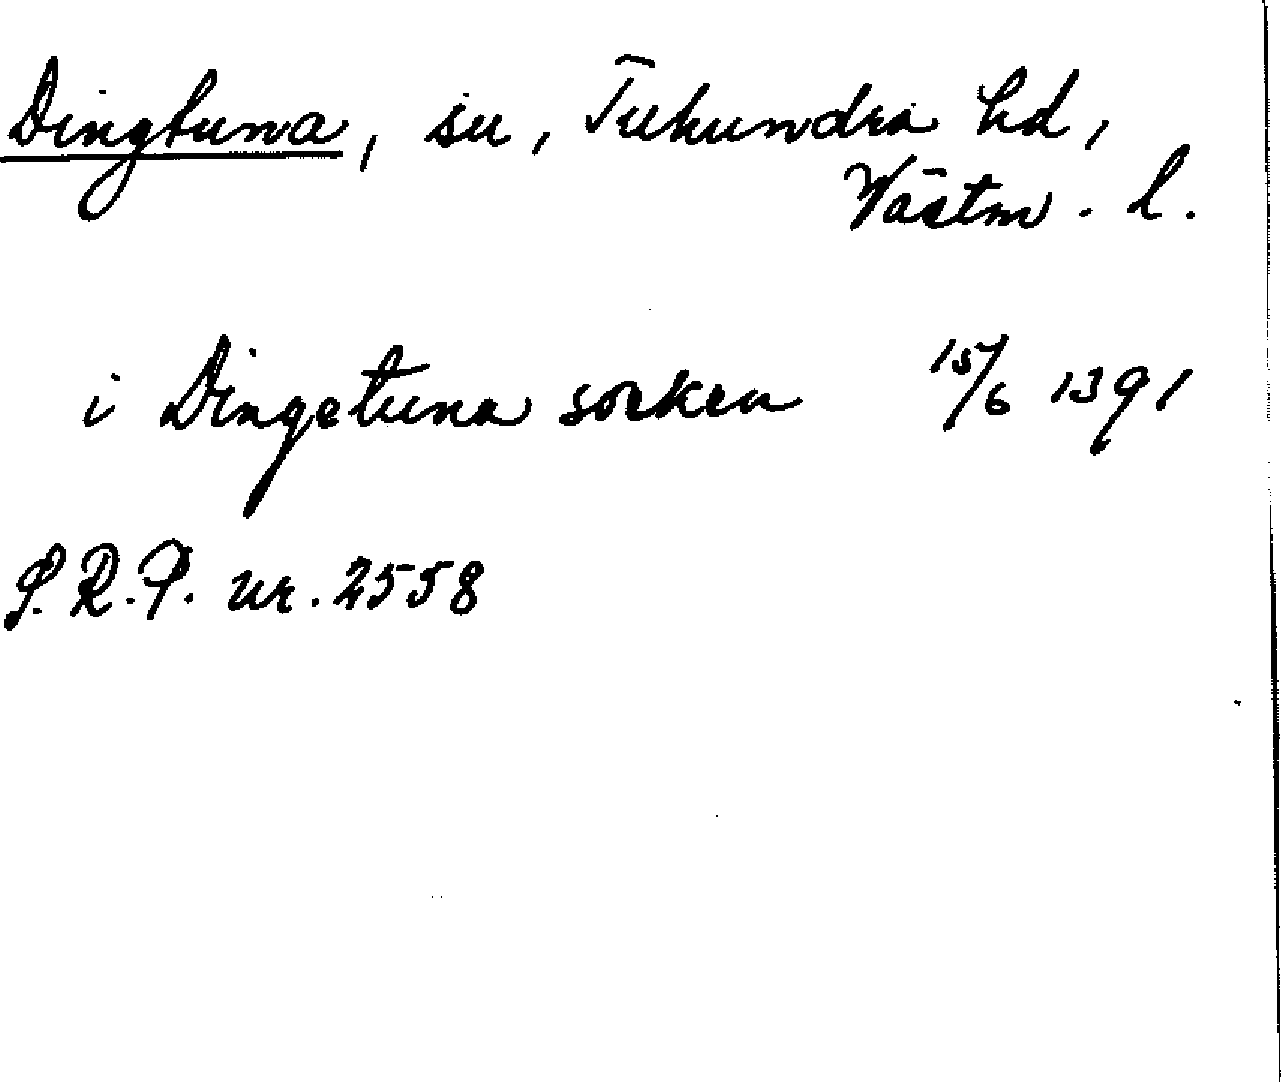 Dingtuna, sn, Tuhundra hd,
Västm. l.
i Dingetuna socken 15/6 1391
S.R.P. nr. 2558